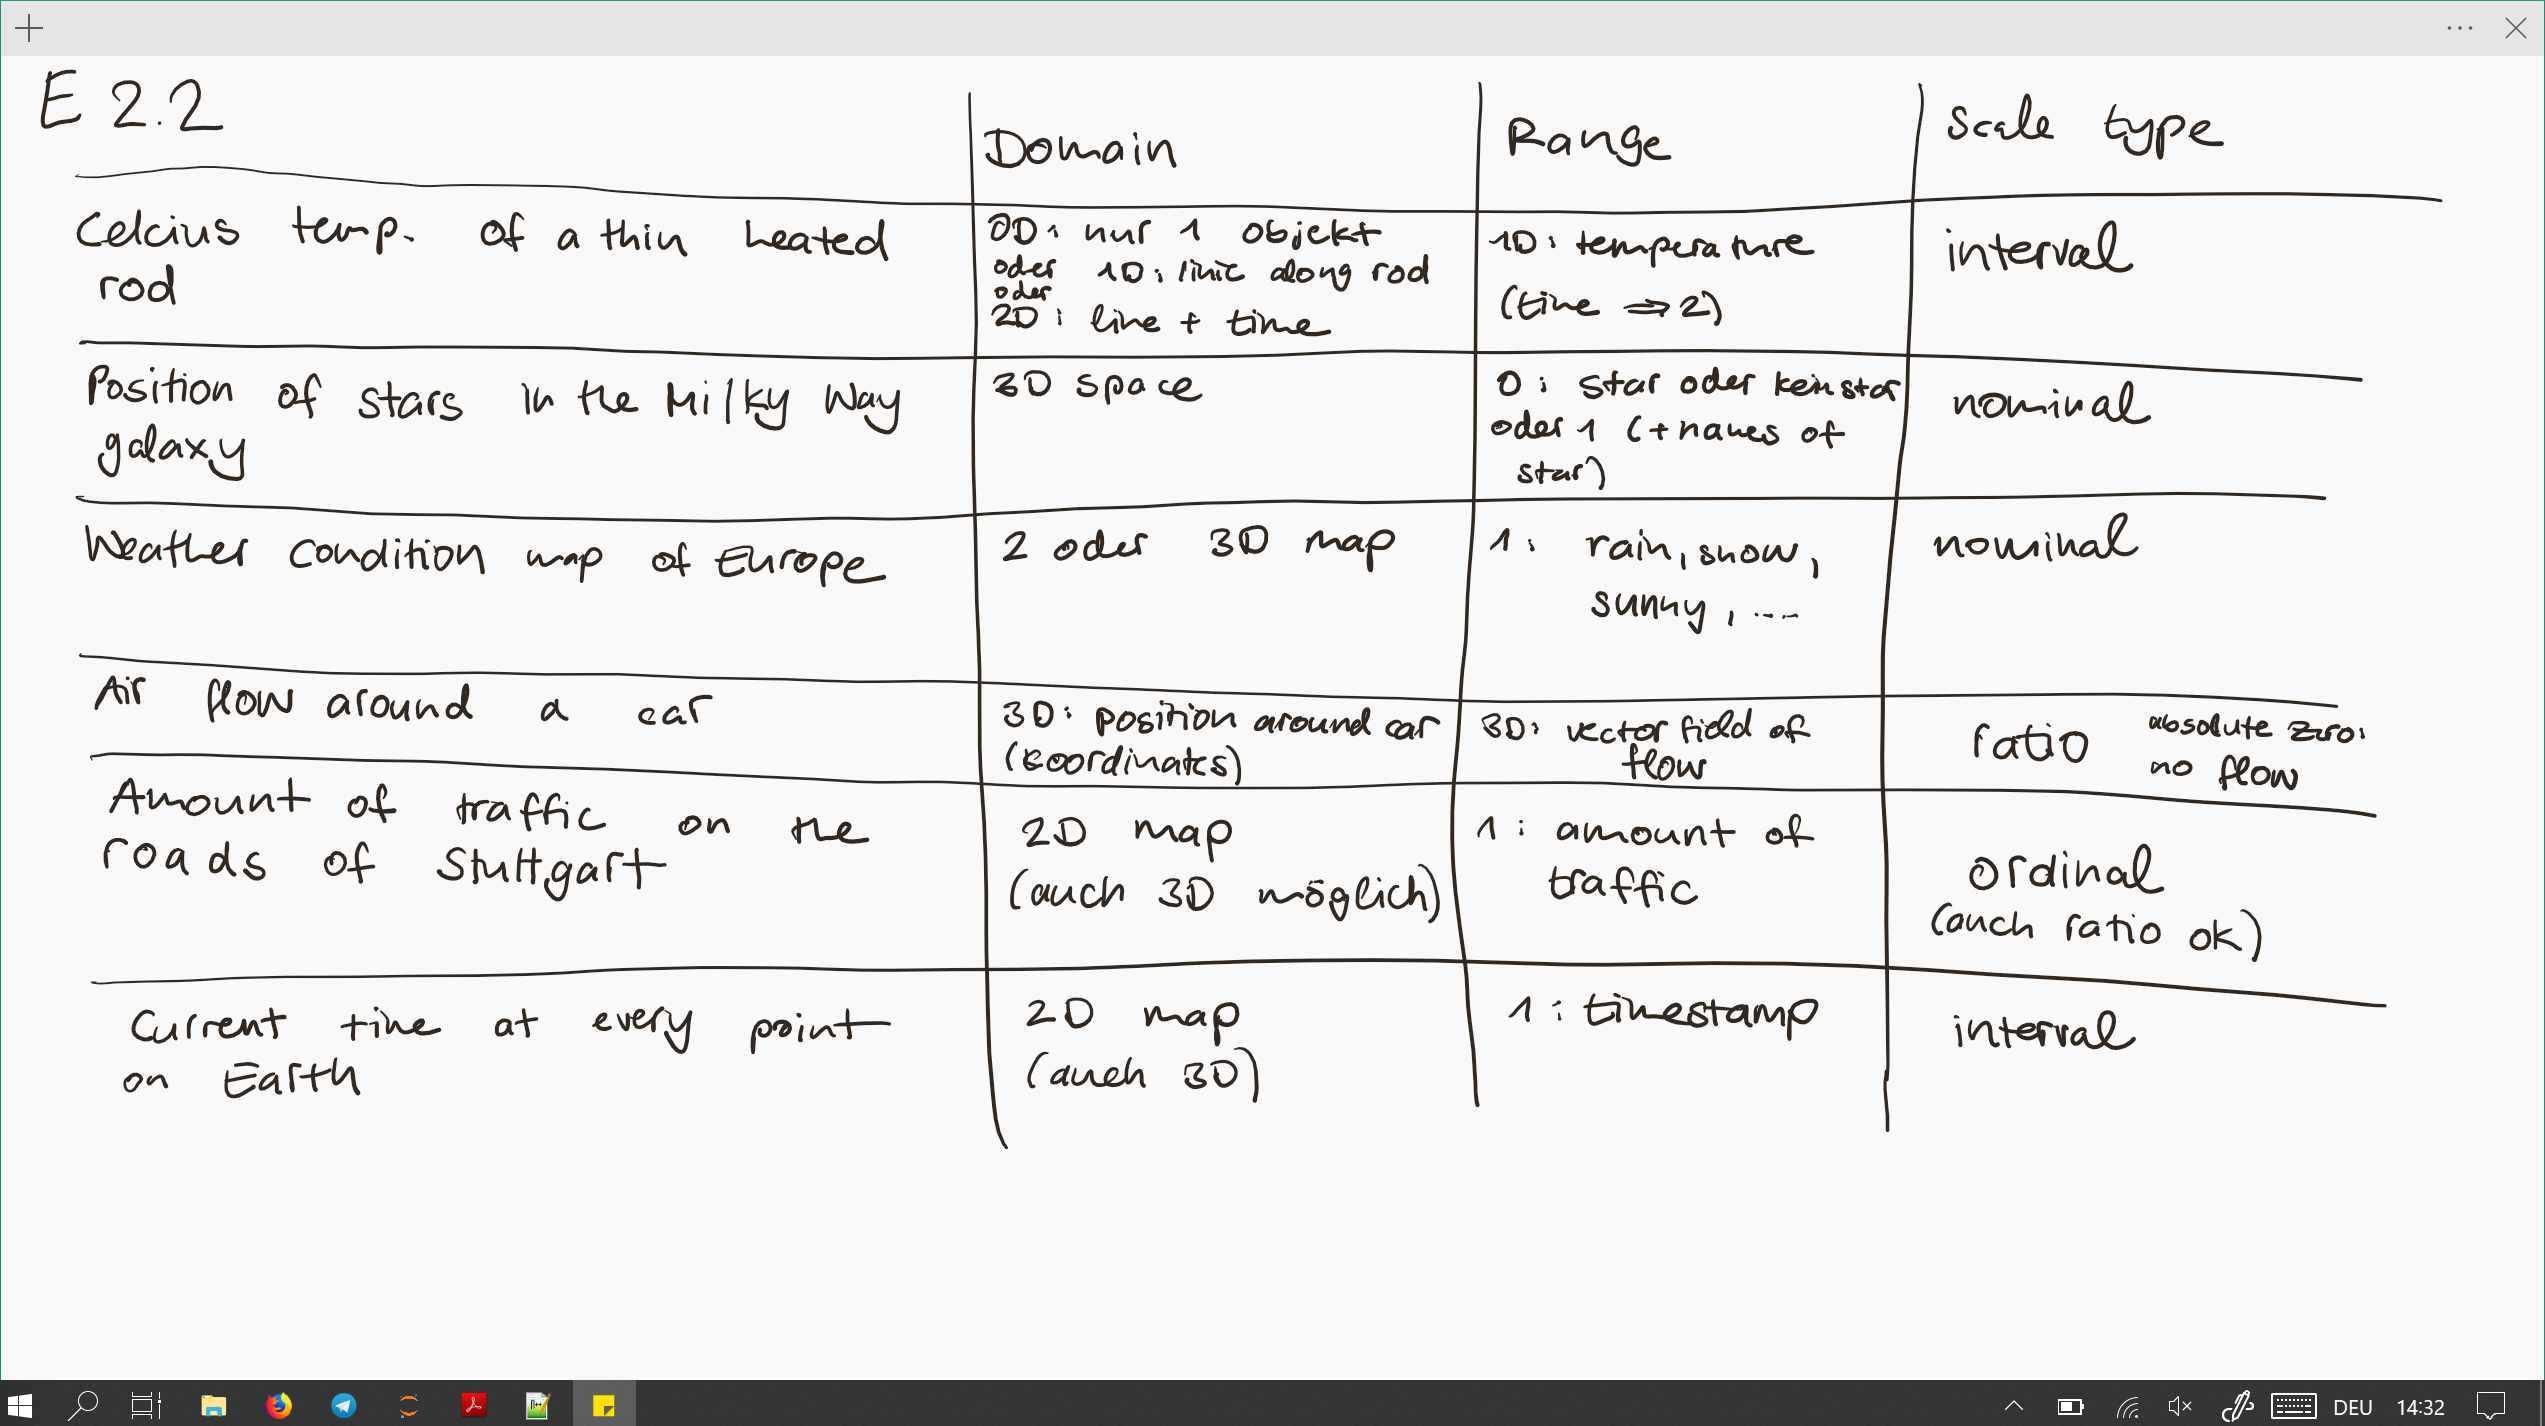 E 2.2
Domain
Range
Scale type
Celcius temp. of a thin heated
rod
0D: nur 1 objekt
oder 1D: linie along rod
oder
2D: line + time
1D: temperature
(time ⇒ 2)
interval
Position of stars in the Milky Way
galaxy
3D space
0: star oder kein star
oder 1 (+ names of
star)
nominal
Weather condition map of Europe
2 oder 3D map
1: rain, snow,
sunny, ....
nominal
Air flow around a car
3D: position around car
(coordinates)
3D: vector field of
flow
ratio
absolute zero:
no flow
Amount of traffic on the
roads of Stuttgart
2D map
(auch 3D möglich)
1: amount of
traffic
ordinal
(auch ratio ok)
Current time at every point
on Earth
2D map
(auch 3D)
1: timestamp
interval
DEU 14:32